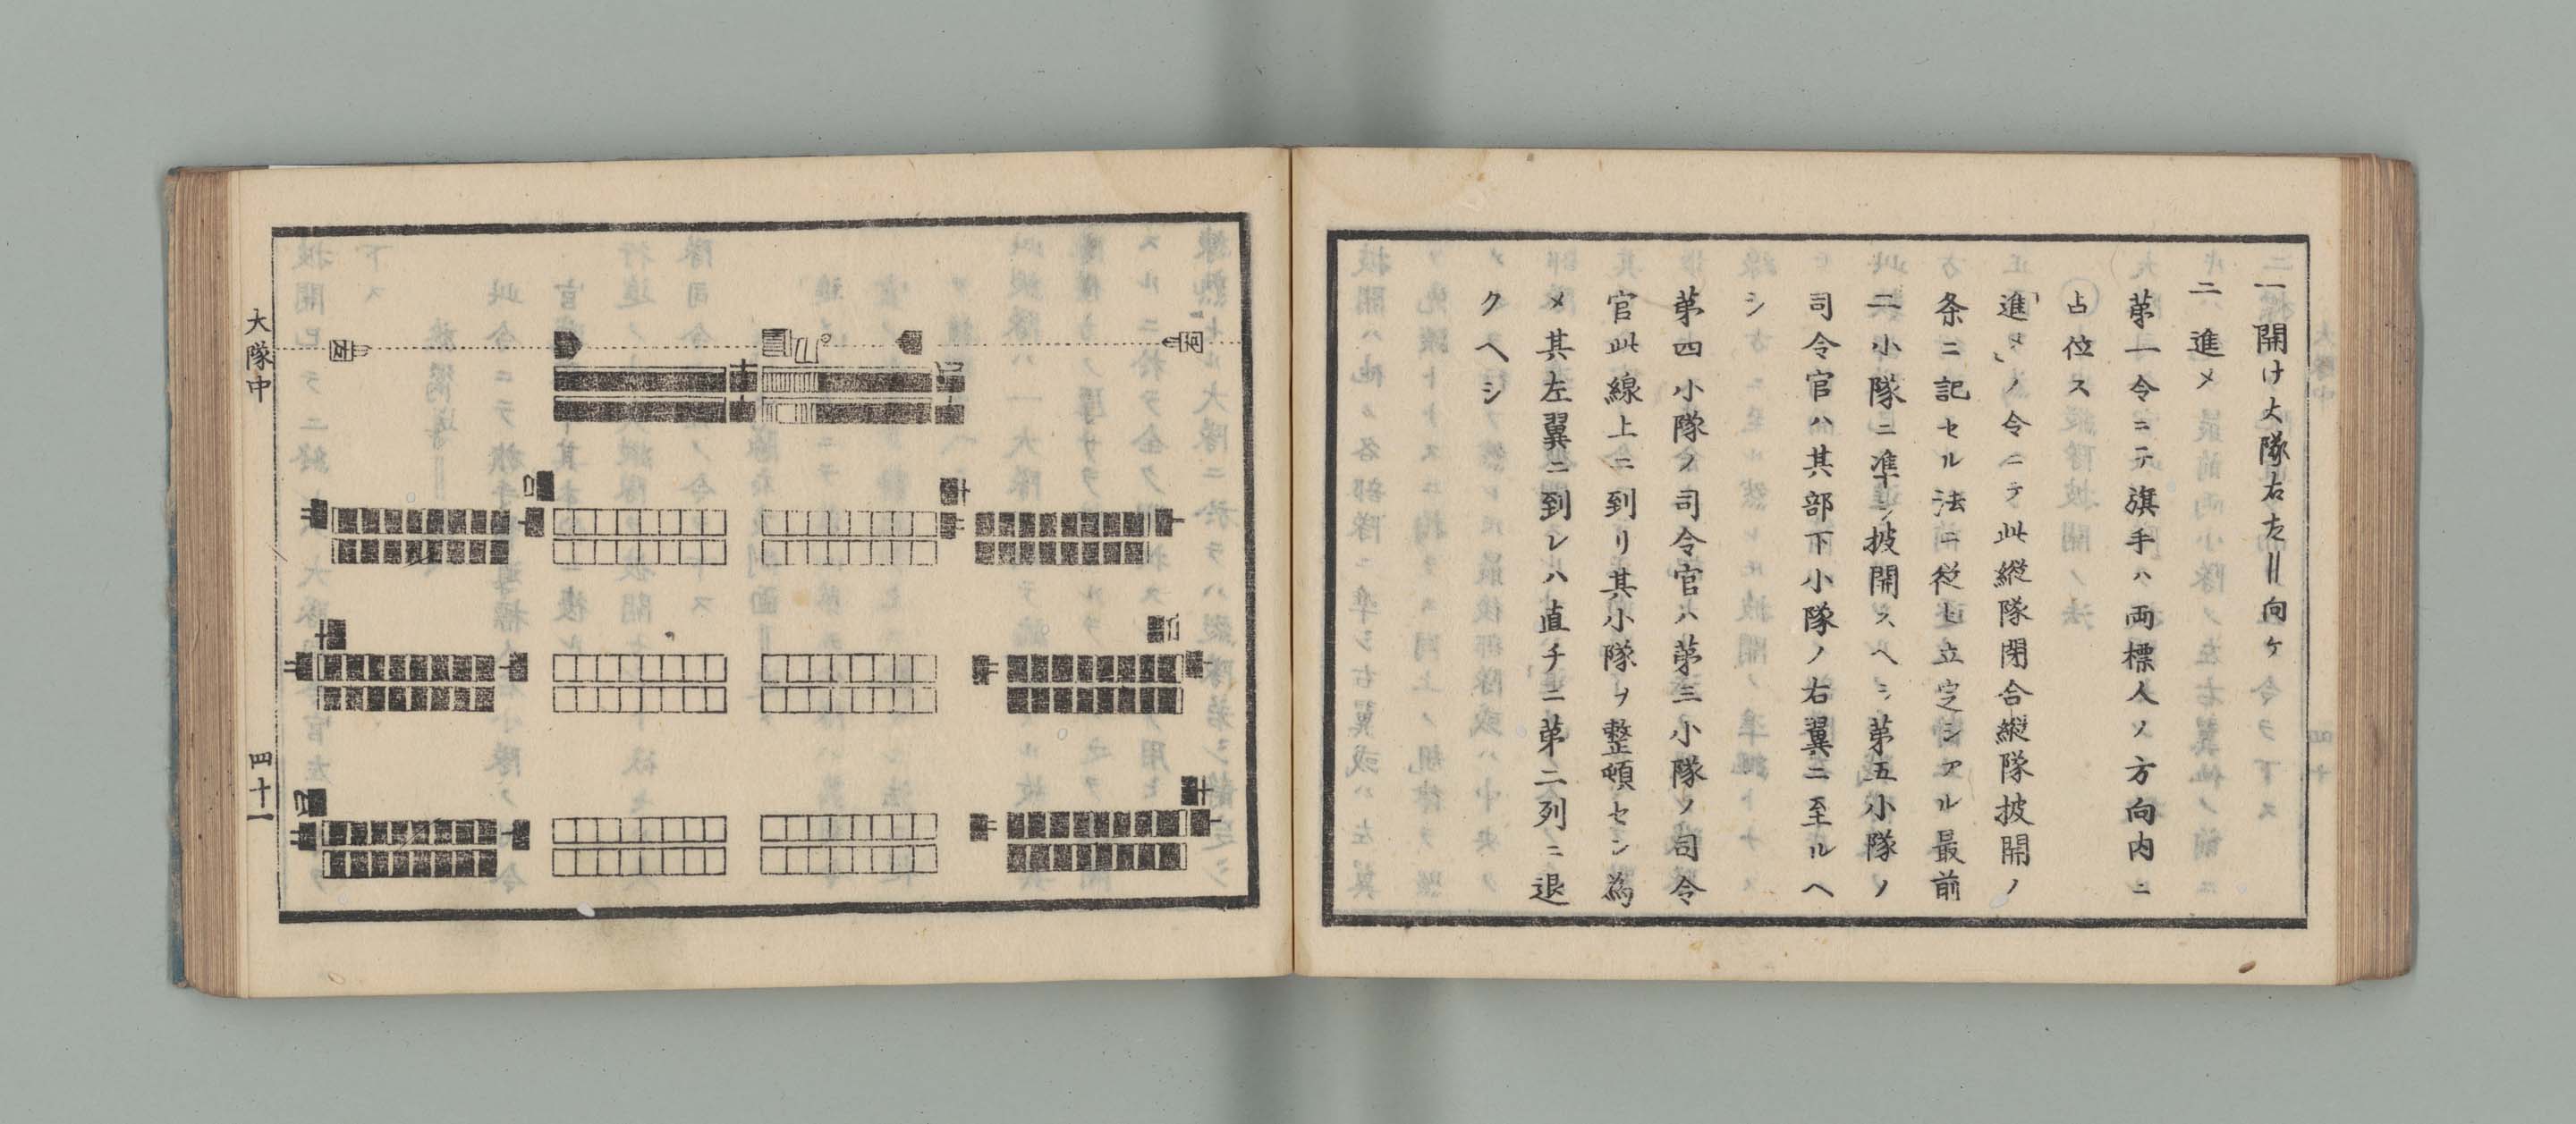 一 開け大隊右左‖向ケ
二 進メ
第一令ニテ旗手ハ両標人ノ方向内ニ
占位ス
「進メ」ノ令ニテ此縦隊閉合縦隊披開ノ
条ニ記セル法ニ従ヒ立定シアル最前
二小隊ニ準シ披開スヘシ第五小隊ノ
司令官ハ其部下小隊ノ右翼ニ至ルヘ
シ
第四小隊ノ司令官ハ第三小隊ノ司令
官此線上ニ到リ其小隊ヲ整頓セシ為
メ其左翼ニ到レハ直チニ第二列ニ退
クヘシ
大隊中
四十一